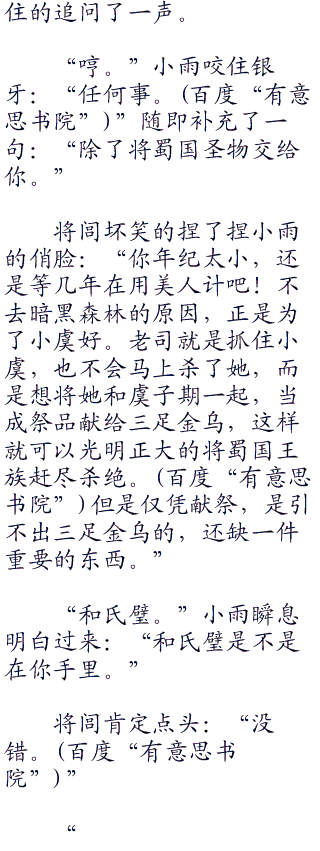 住的追问了一声。
“哼。”小雨咬住银
牙：“任何事。(百度“有意
思书院”)”随即补充了一
句：“除了将蜀国圣物交给
你。”
将闾坏笑的捏了捏小雨
的俏脸：“你年纪太小，还
是等几年在用美人计吧！不
去暗黑森林的原因，正是为
了小虞好。老司就是抓住小
虞，也不会马上杀了她，而
是想将她和虞子期一起，当
成祭品献给三足金乌，这样
就可以光明正大的将蜀国王
族赶尽杀绝。(百度“有意思
书院”)但是仅凭献祭，是引
不出三足金乌的，还缺一件
重要的东西。”
“和氏璧。”小雨瞬息
明白过来：“和氏璧是不是
在你手里。”
将闾肯定点头：“没
错。(百度“有意思书
院”)”
“